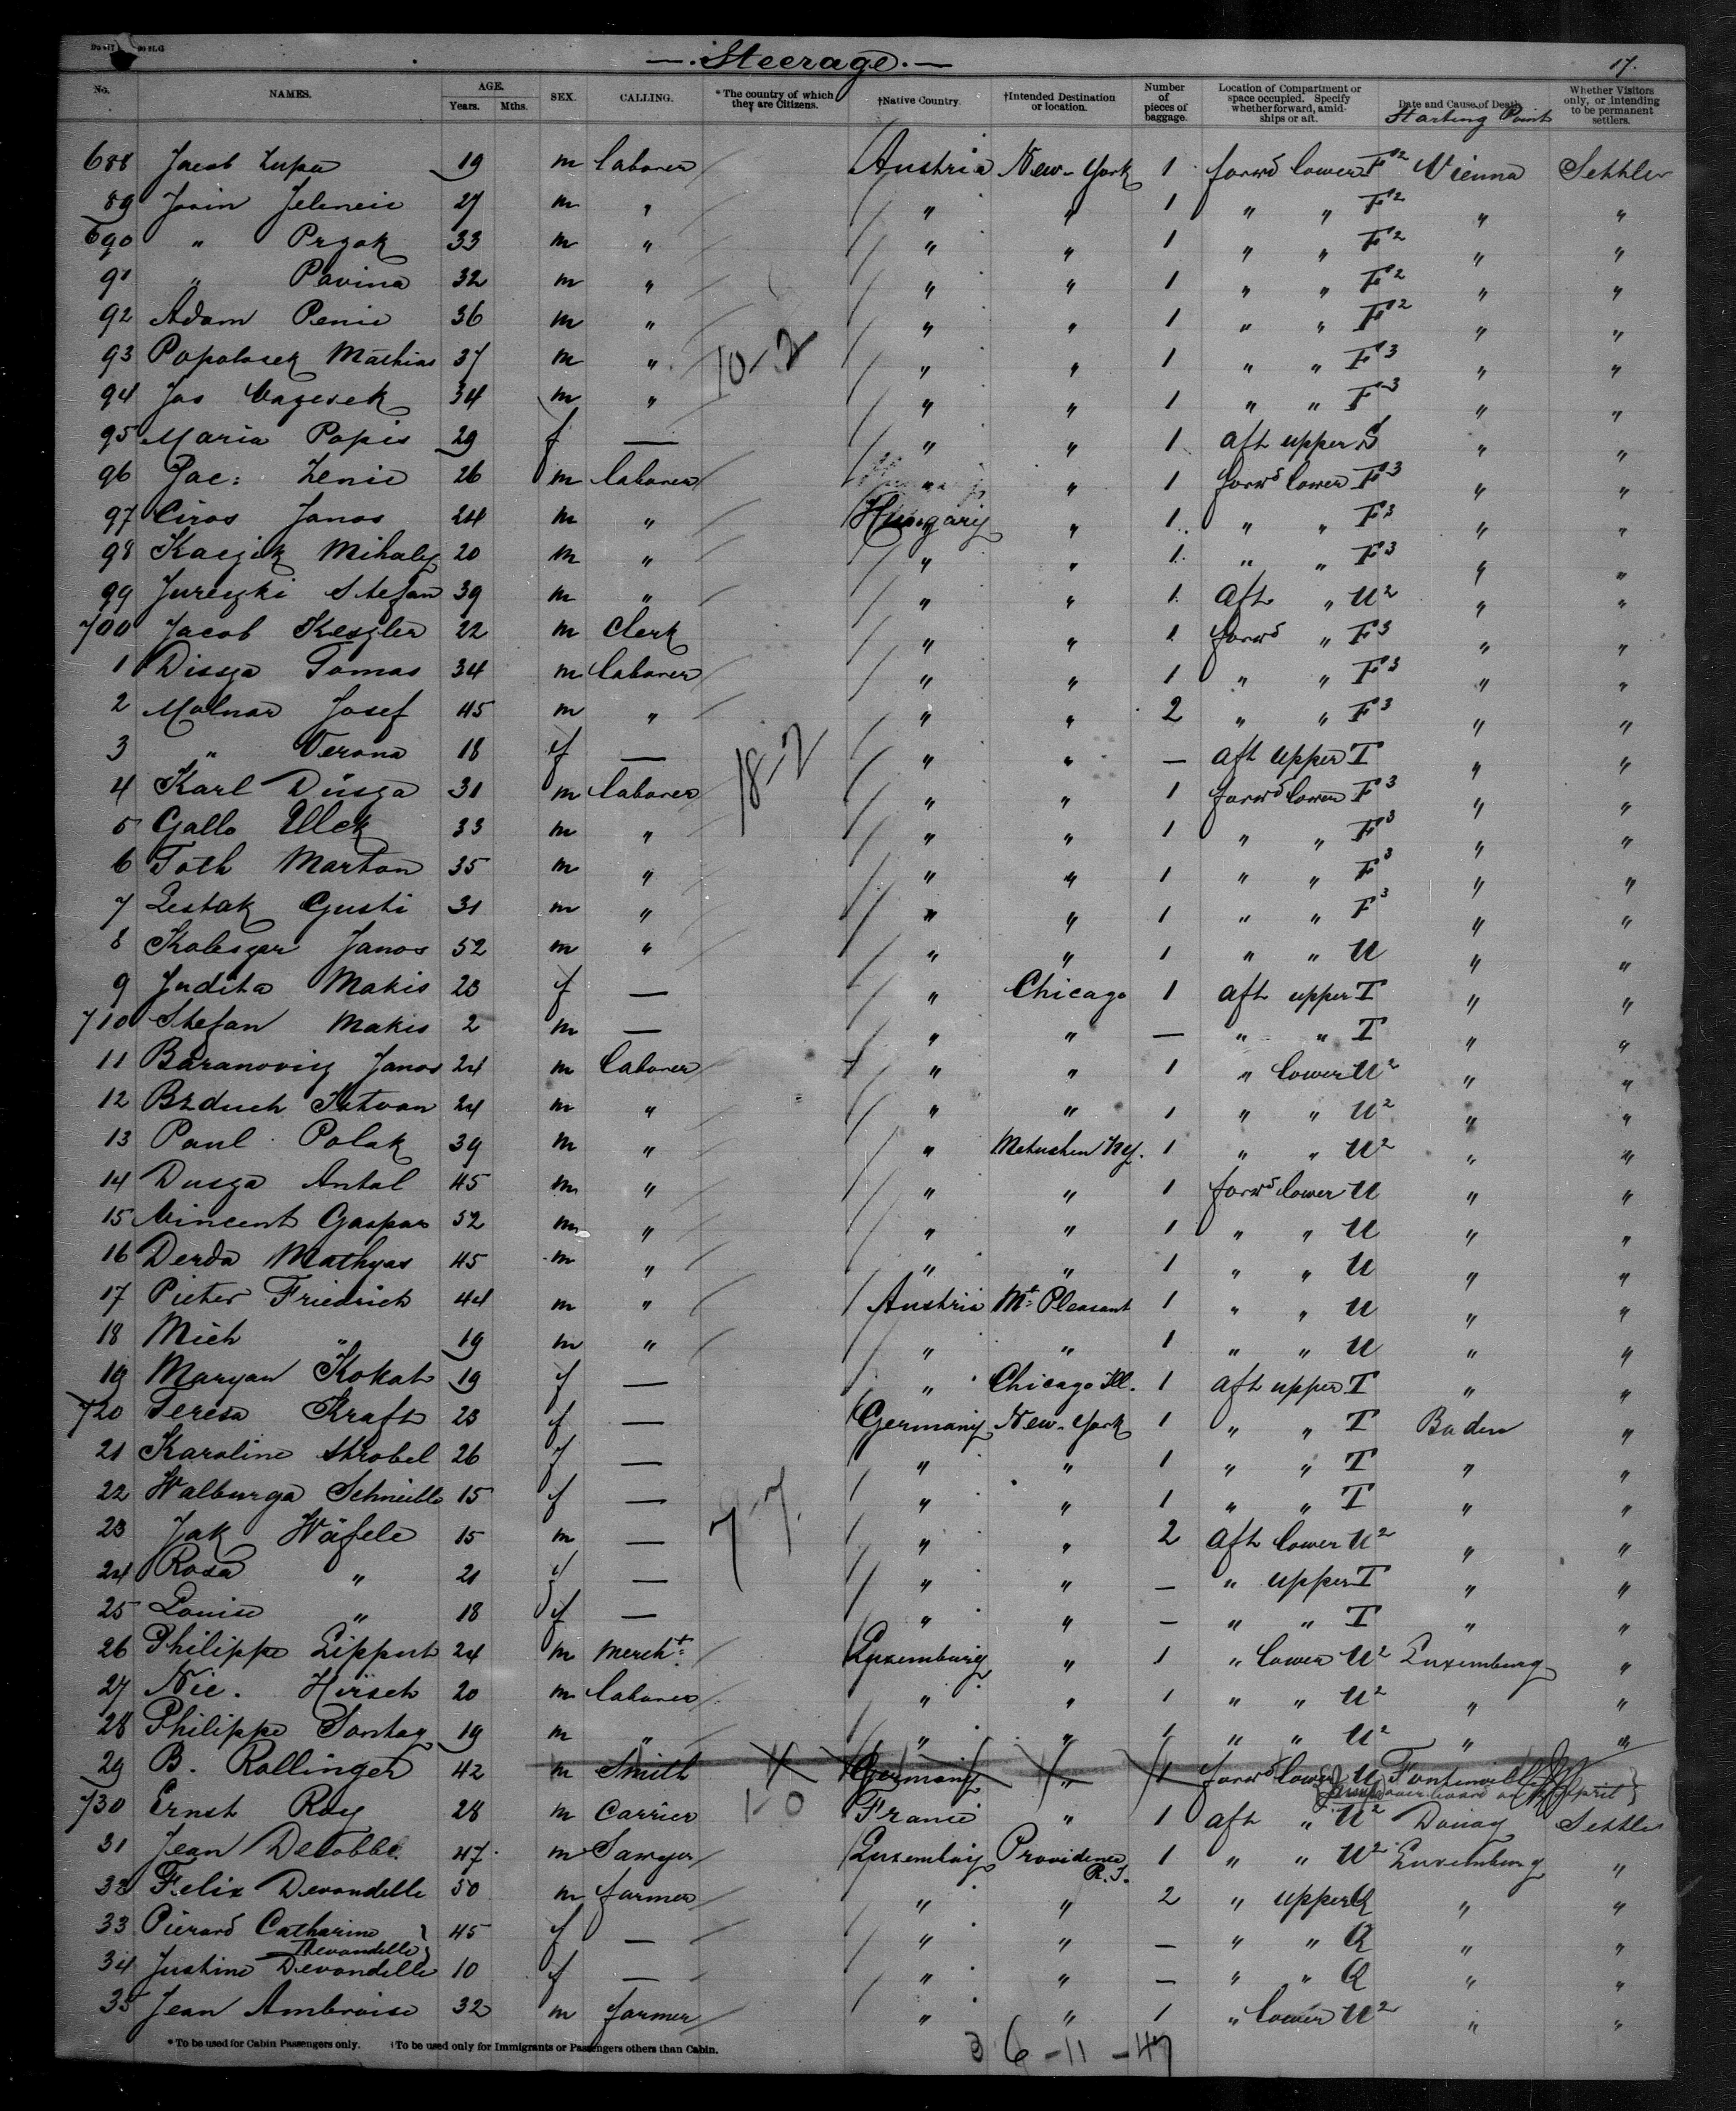 —. Steerage. —
17.
No. NAMES. AGE. Years. Mths. SEX. CALLING. *The country of which they are Citizens. †Native Country. †Intended Destination or location. Number of pieces of baggage. Location of Compartment or space occupied. Specify whether forward, amidships or aft. Date and Cause of Death. Starting Point Whether Visitors only, or intending to be permanent settlers.
688 Jacob Zupa 19 m laborer Austria New-York 1 forwd lower F2 Vienna Settler
89 Josin Jelencic 27 m " " " 1 " " F2 " "
690 " Przak 33 m " " " 1 " " F2 " "
91 " Pavina 32 m " " " 1 " " F2 " "
92 Adam Penic 36 m " " " 1 " " F2 " "
93 Popolosek Mathias 37 m " 10-2 " " 1 " " F3 " "
94 Jos 34 m " " " 1 " " F3 " "
95 Maria Popis 29 f — " " 1 aft upper S " "
96 Jac: Zenic 26 m laborer " " 1 forwd lower F3 " "
97 Ciros Janos 24 m " Hungary " 1 " " F3 " "
98 Mihaly 20 m " " " 1 " " F3 " "
99 Stefan 39 m " " " 1 aft " U2 " "
700 Jacob Keszler 22 m Clerk " " 1 forwd " F3 " "
1 Tomas 34 m laborer " " 1 " " F3 " "
2 Molnar Josef 45 m " " " 2 " " F3 " "
3 " Verona 18 f — 18-2 " " — aft upper T " "
4 Karl Dusza 31 m laborer " " 1 forwd lower F3 " "
5 Gallo Illek 33 m " " " 1 " " F3 " "
6 Toth Marton 35 m " " " 1 " " F3 " "
7 Lestak Gusti 31 m " " " 1 " " F3 " "
8 Koleszar Janos 52 m " " " 1 " " U " "
9 Judita Makis 23 f — " Chicago 1 aft upper T " "
710 Stefan Makis 2 m — " " — " " T " "
11 Baranovig Janos 24 m laborer " " 1 " lower U2 " "
12 Bzduch Istvan 24 m " " " 1 " " U2 " "
13 Paul Polak 39 m " " Metuchen NY. 1 " " U2 " "
14 Dusza Antal 45 m " " " 1 forwd lower U " "
15 Vincent Gaspar 52 m " " " 1 " " U " "
16 Derda Mathyas 45 m " " " 1 " " U " "
17 Pieter Friedrich 44 m " Austria Mt Pleasant 1 " " U " "
18 Mich " 19 m " " " 1 " " U " "
19 Maryan Kokah 19 f — " Chicago Ill. 1 aft upper T " "
720 Teresa Kraft 23 f — Germany New-York 1 " " T Baden "
21 Karoline Strobel 26 f — " " 1 " " T " "
22 Walburga Schneible 15 f — " " 1 " " T " "
23 Jak Wäfele 15 m — 7-7. " " 2 aft lower U2 " "
24 Rosa " 21 f — " " — " upper T " "
25 Louise " 18 f — " " — " " T " "
26 Philippe Lippert 24 m Mercht Luxemburg " 1 " lower U2 Luxemburg "
27 Nic. Hirsch 20 m laborer " " 1 " " U2 " "
28 Philippe Sontag 19 m " " " 1 " " U2 " "
29 B. Rollinger 42 m Smith Germany " 1 forwd lower U
overboard on April
730 Ernst Roy 28 m Carrier 1-0 France " 1 aft " U2 Douay Settler
31 Jean Decobbe 47 m Sawyer Luxemburg Providence R.I. 1 " " U2 Luxemburg "
32 Felix Devondelle 50 m farmer " " 2 " upper Q " "
33 Pierard Catharine Devondelle 45 f — " " — " " Q " "
34 Justine Devondelle 10 f — " " — " " Q " "
35 Jean Ambroise 32 m farmer " " 1 " lower U2 " "
* To be used for Cabin Passengers only. †To be used only for Immigrants or Passengers others than Cabin.
36-11-47